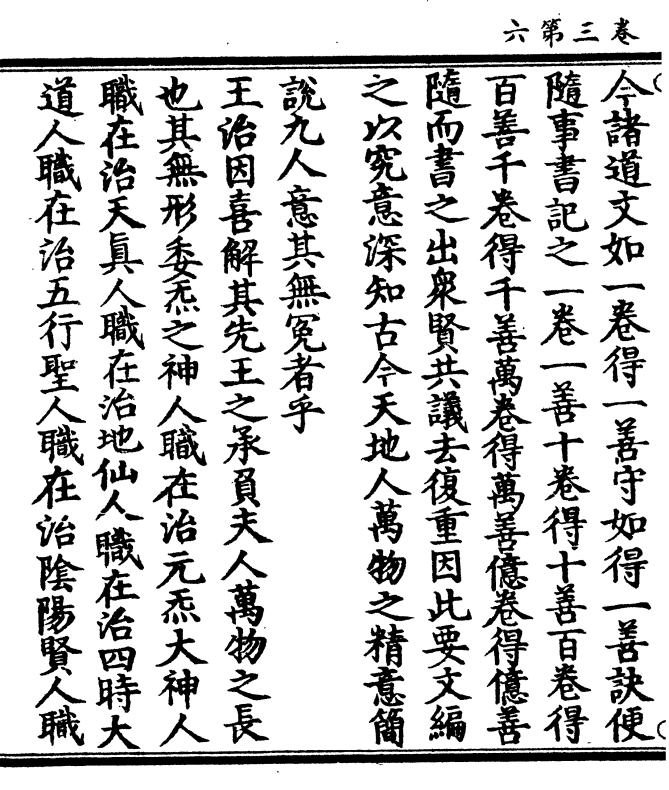 卷三第六
今諸道文如一卷得一善守如得一善訣便
隨事書記之一卷一善十卷得十善百卷得
百善千卷得千善萬卷得萬善億卷得億善
隨而書之出衆賢共議去復重因此要文編
之以究意深知古今天地人萬物之精意簡
說九人意其無冤者乎
王治因喜解其先王之承負夫人萬物之長
也其無形委炁之神人職在治元炁大神人
職在治天眞人職在治地仙人職在治四時大
道人職在治五行聖人職在治陰陽賢人職